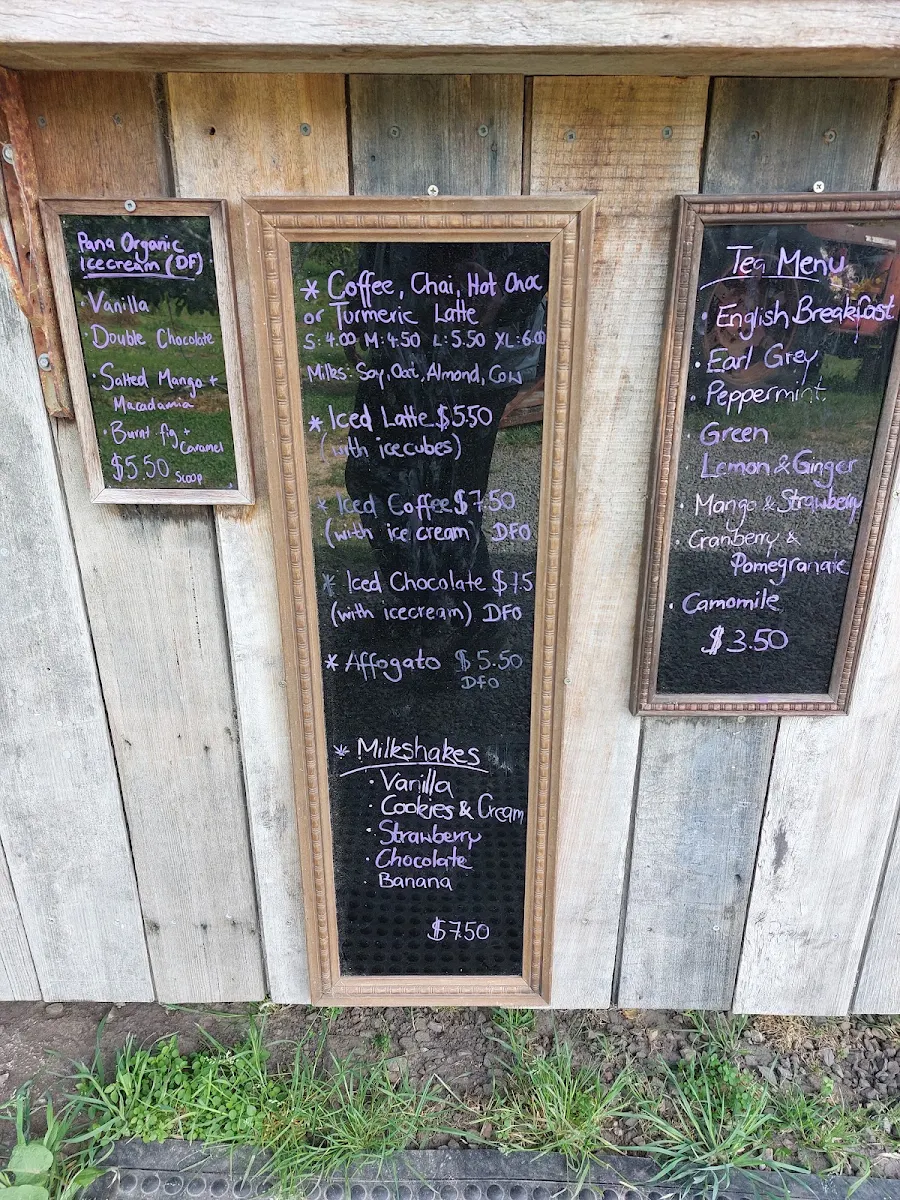 Pana Organic
Icecream (DF)
· Vanilla
· Double Chocolate
· Salted Mango +
Macadamia
· Burnt fig +
Caramel
$5.50 scoop
* Coffee, Chai, Hot Choc
or Turmeric Latte
S: 4.00 M: 4.50 L: 5.50 XL: 6.00
Milks: Soy, Oat, Almond, Cow
* Iced Latte $5.50
(with icecubes)
* Iced Coffee $7.50
(with ice cream) DFO
* Iced Chocolate $7.5
(with icecream) DFO
* Affogato $5.50
DFO
* Milkshakes
· Vanilla
· Cookies & Cream
· Strawberry
· Chocolate
· Banana
$7.50
Tea Menu
· English Breakfast
· Earl Grey
· Peppermint
· Green
· Lemon & Ginger
· Mango & Strawberry
· Cranberry &
Pomegranate
· Camomile
$3.50